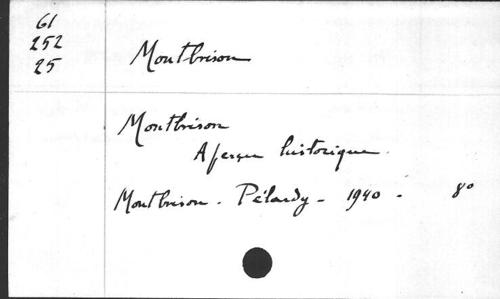 61
252
25
Montbrison
Montbrison
Aperçu historique.
Montbrison - Pélardy - 1940 - 8°